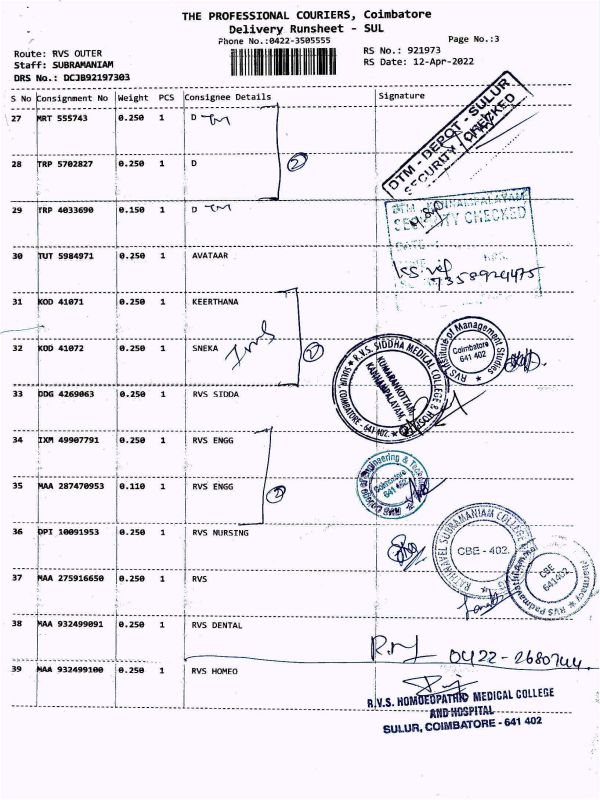 THE PROFESSIONAL COURIERS, Coimbatore
Delivery Runsheet - SUL
Phone No.:0422-3505555
Page No.:3
Route: RVS OUTER
RS No.: 921973
Staff: SUBRAMANIAM
RS Date: 12-Apr-2022
DRS No.: DCJB92197303
S No Consignment No Weight PCS Consignee Details Signature
27 MRT 555743 0.250 1 D TM
DTM - DEPOT - SULUR
SECURITY CHECKED
28 TRP 5702827 0.250 1 D
2
29 TRP 4033690 0.150 1 D TM
SECURITY CHECKED
30 TUT 5984971 0.250 1 AVATAAR
7358924475
31 KOD 41071 0.250 1 KEERTHANA
32 KOD 41072 0.250 1 SNEKA
2
R.V.S. SIDDHA MEDICAL COLLEGE &
KUMARANKOTTAM,
KANNAMPALAYAM,
SULUR, COIMBATORE - 641 402.
RVS Institute of Management Studies
Coimbatore
641 402
33 DDG 4269063 0.250 1 RVS SIDDA
34 IXM 49907791 0.250 1 RVS ENGG
35 MAA 287470953 0.110 1 RVS ENGG
2
Coimbatore
641 402
36 DPI 10091953 0.250 1 RVS NURSING
RATHNAVEL SUBRAMANIAM COLLEGE
CBE - 402.
37 MAA 275916650 0.250 1 RVS
RVS Padmavathi Ammal
Pharmacy
CBE
641402
38 MAA 932499091 0.250 1 RVS DENTAL
0422-2680744
39 MAA 932499100 0.250 1 RVS HOMEO
R.V.S. HOMOEOPATHIC MEDICAL COLLEGE
AND HOSPITAL
SULUR, COIMBATORE - 641 402